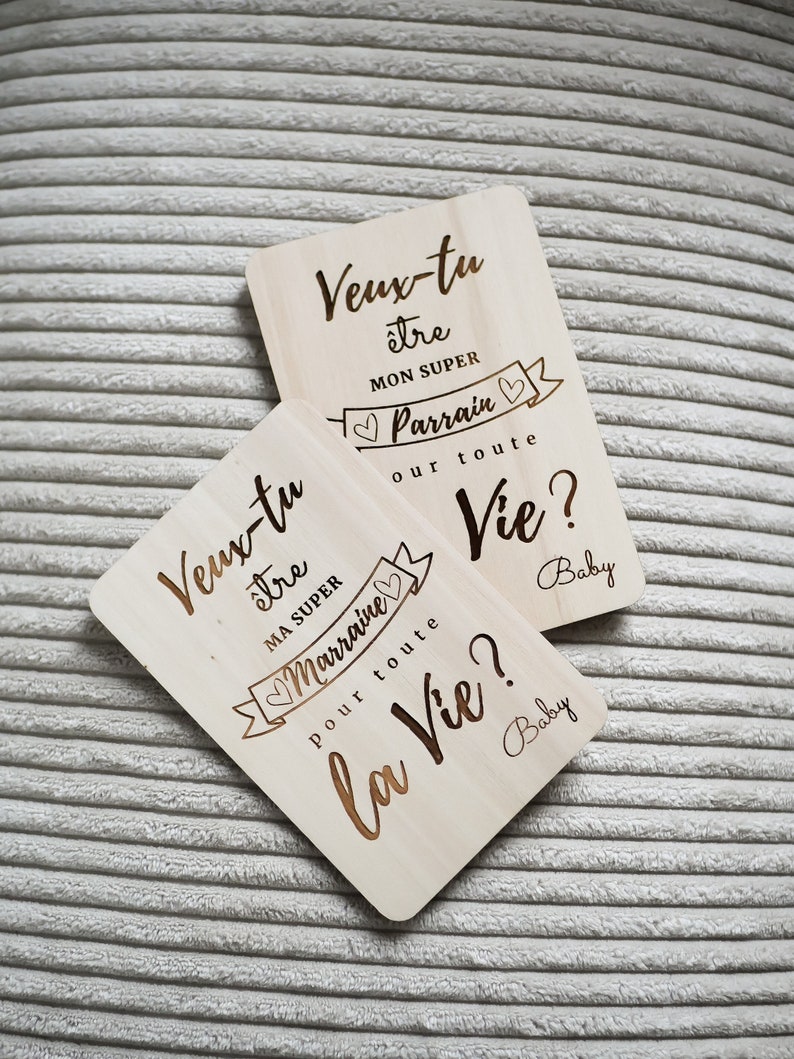 Veux-tu
être
MON SUPER
Parrain
our toute
Vie?
Baby
Veux-tu
être
MA SUPER
Marraine
pour toute
la Vie?
Baby